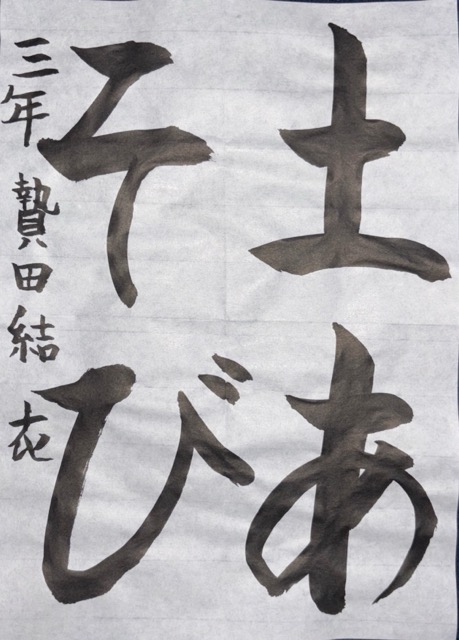 土あ
そび
三年 贄田結衣